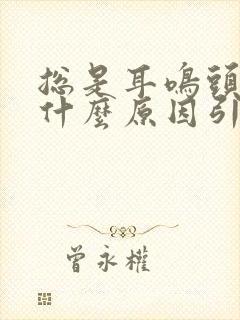 总是耳鳴頭
什麼原因引
曾永權